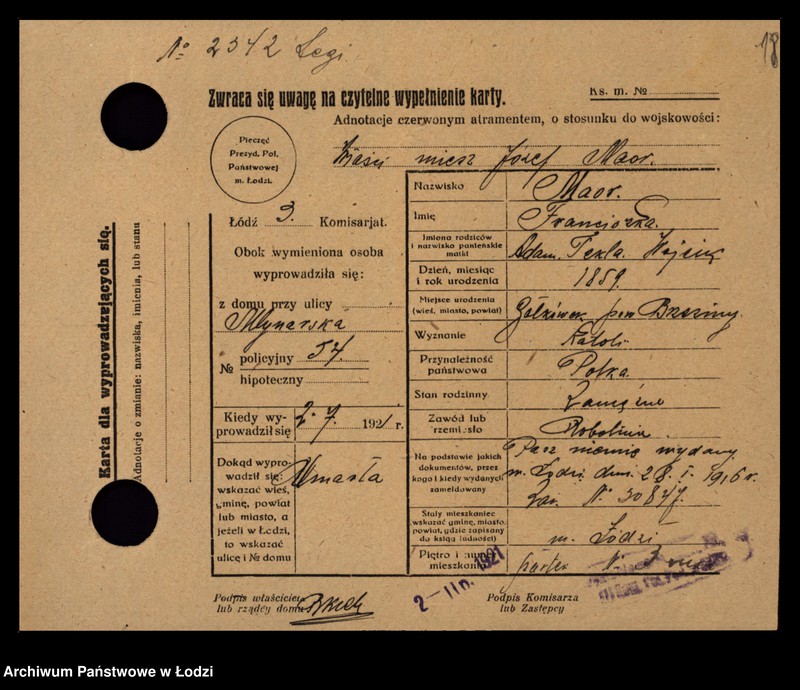 No 2342 Legi.
18
Zwraca się uwagę na czytelne wypełnienie karty.
Ks. m. №
Adnotacje czerwonym atramentem, o stosunku do wojskowości:
miesz Józef Maor.
Pieczęć
Prezyd. Pol.
Państwowej
m. Łodzi.
Łódź 3. Komisarjat.
Obok wymieniona osoba
wyprowadziła się:
z domu przy ulicy
Młynarska
№ policyjny 54.
hipoteczny
Kiedy wy-
prowadził się 2. 7. 1921 r.
Dokąd wypro-
wadził się
wskazać wieś,
gminę, powiat
lub miasto, a
jeżeli w Łodzi,
to wskazać
ulicę i № domu
Umarła
Nazwisko Maor.
Imię Franciszka.
Imiona rodziców
i nazwisko panieńskie
matki
Adam. Tekla.
Dzień, miesiąc
i rok urodzenia
1859.
Miejsce urodzenia
(wieś, miasto, powiat)
pow Brzeziny.
Wyznanie Katol.
Przynależność
państwowa
Polka.
Stan rodzinny Zamężna
Zawód lub
rzemiosło
Robotnica
Na podstawie jakich
dokumentów, przez
kogo i kiedy wydanych
zameldowany
Pasz niemie wydany
m. Łodzi dnia 28. I. 1916 r.
No 30847.
Stały mieszkaniec
wskazać gminę, miasto,
powiat, gdzie zapisany
do ksiąg ludności)
m. Łodzi
Piętro i numer
mieszkania
parter № 3
Podpis właściciela
lub rządcy domu
2 - LIP. 1921
Podpis Komisarza
lub Zastępcy
Karta dla wyprowadzających się.
Adnotacje o zmianie: nazwiska, imienia, lub stanu
Archiwum Państwowe w Łodzi